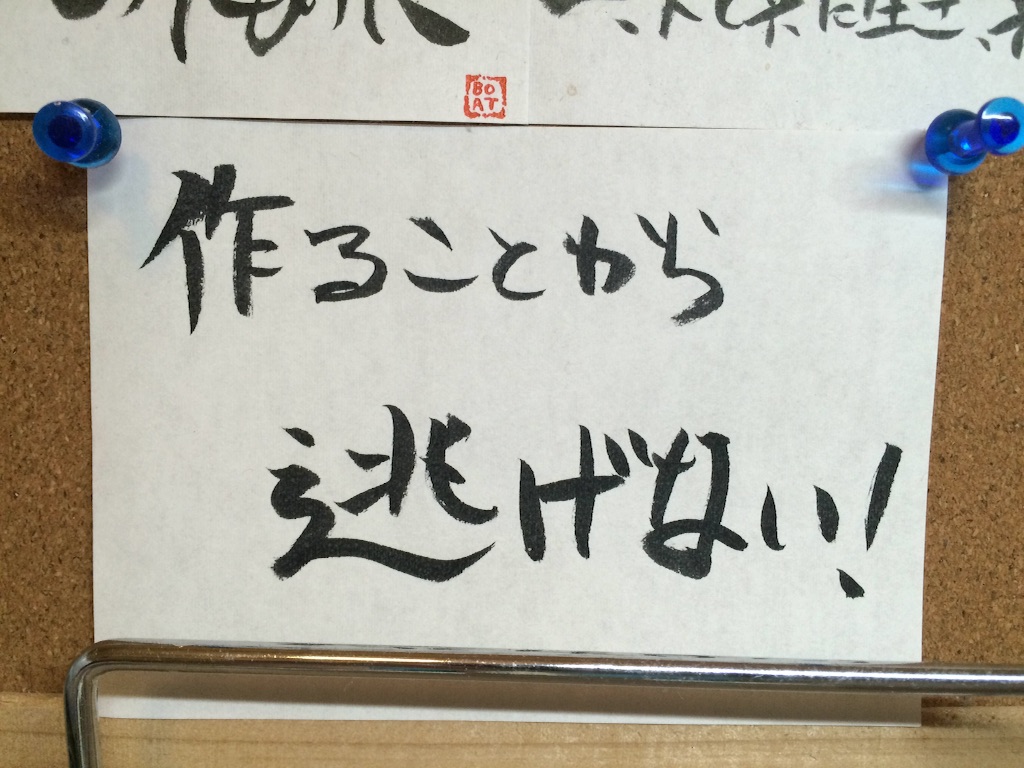 BO
AT
作ることから
逃げない!